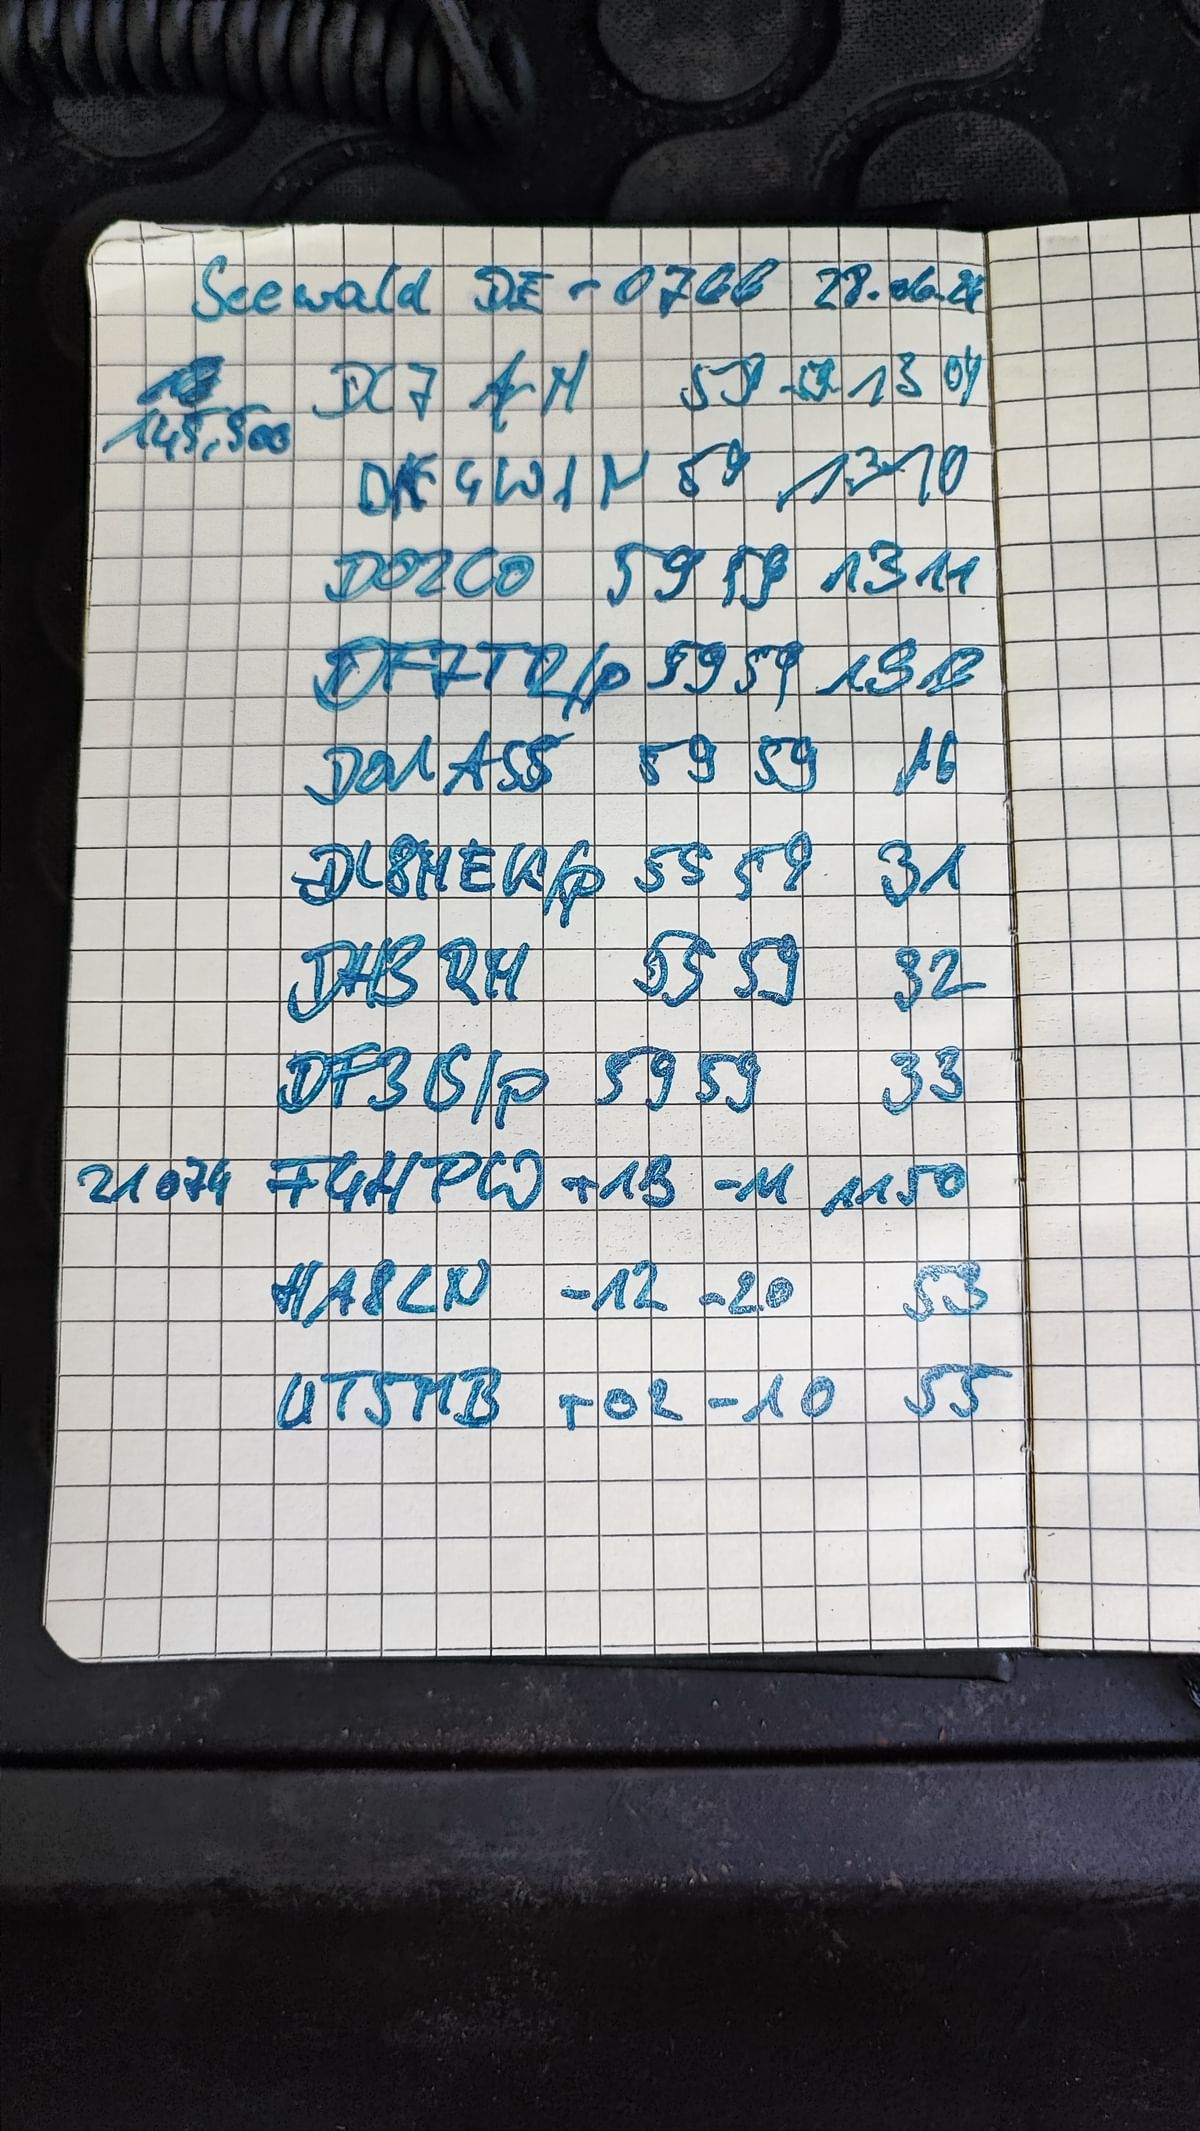 Seewald DE-0766 28.06.24
145,500 DC7 AM 59 59 1304
4W1N 59 1310
DO2CO 59 59 1311
DF7TR/p 59 59 1312
DO1ASS 59 59 16
DL8MEK/p 55 59 31
DH3RM 55 59 32
DF3IS/p 59 59 33
21074 F4HPW +13 -11 1150
HA8LN -12 -20 53
UT5MB +02 -10 55